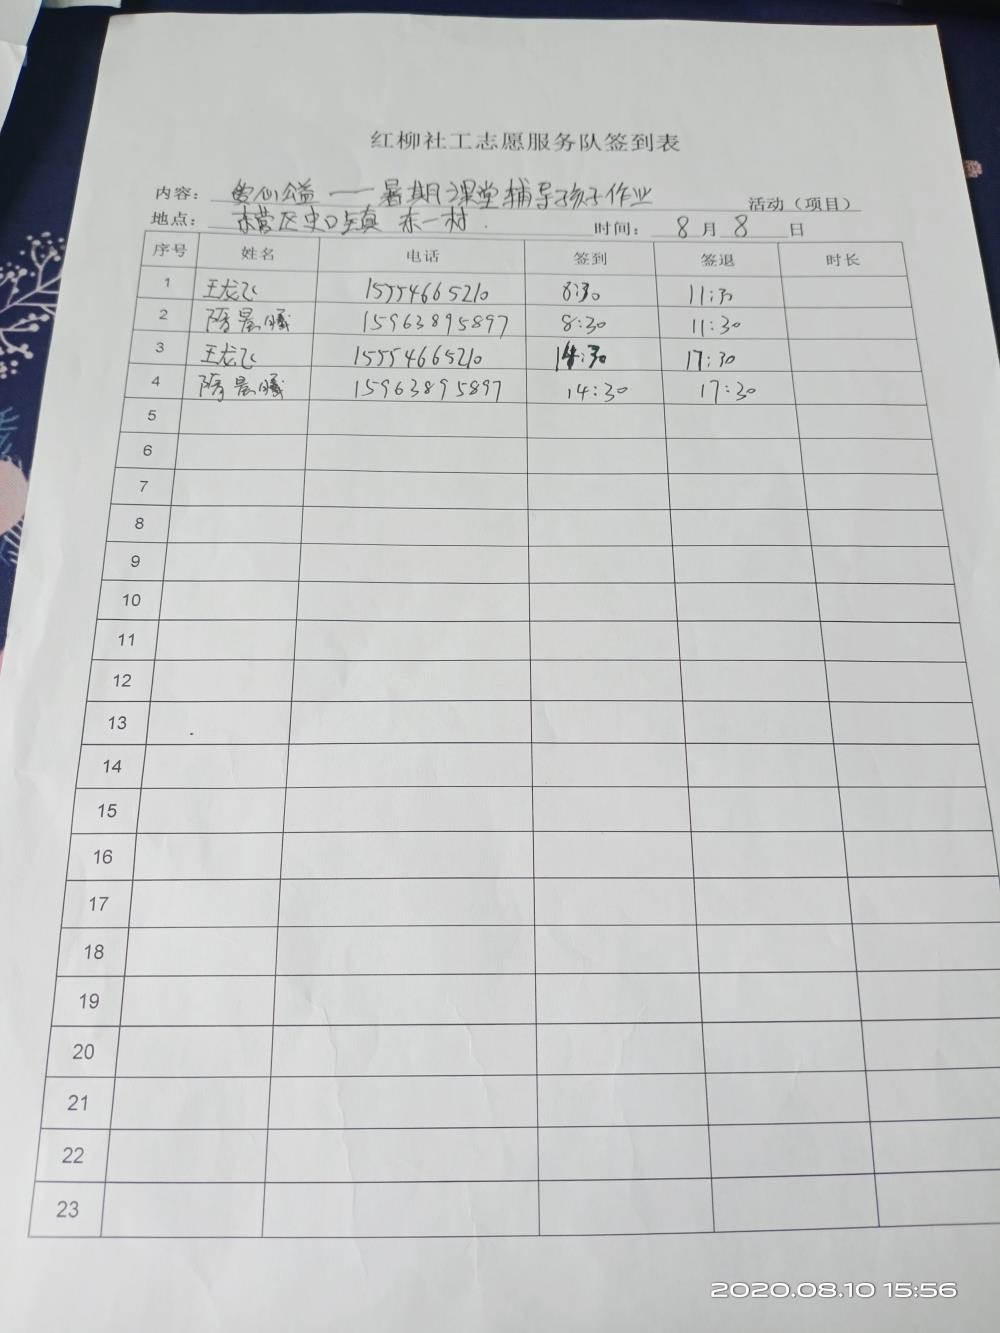 红柳社工志愿服务队签到表
内容： 爱心公益——暑期课堂辅导孩子作业 活动（项目）
地点： 东营区史口镇 东一村 时间： 8 月 8 日
序号 姓名 电话 签到 签退 时长
1 王龙飞 15554665210 8:30 11:30
2 隋晨曦 15963895897 8:30 11:30
3 王龙飞 15554665210 14:30 17:30
4 隋晨曦 15963895897 14:30 17:30
5
6
7
8
9
10
11
12
13
14
15
16
17
18
19
20
21
22
23
2020.08.10 15:56